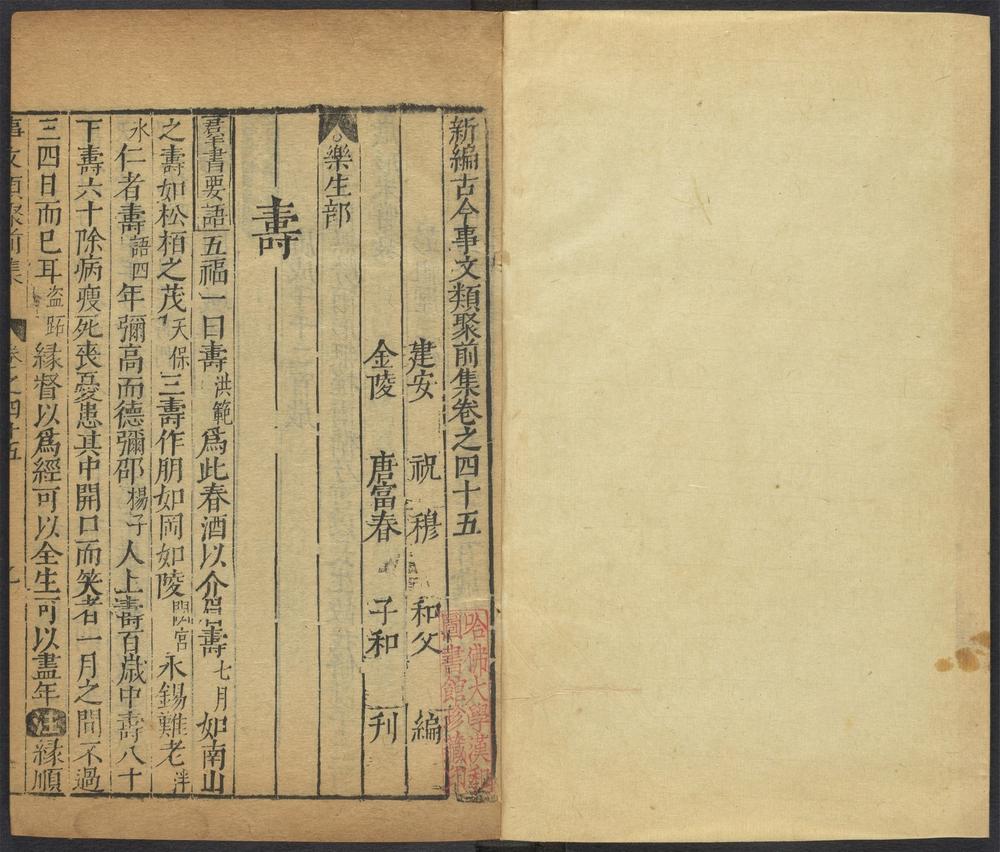 新編古今事文類聚前集卷之四十五
建安 祝穆 和父 編
金陵 唐富春 子和 刊
樂生部
壽
羣書要語五福一曰壽洪範爲此春酒以介眉壽七月如南山
之壽如松栢之茂天保三壽作朋如岡如陵閟宮永錫難老泮
水仁者壽語四年彌高而德彌邵楊子人上壽百歲中壽八十
下壽六十除病瘦死喪憂患其中開口而笑者一月之間不過
三四日而已耳盗跖緣督以爲經可以全生可以盡年注緣順
事文類聚前集 卷之四十五
哈佛大學漢和
圖書館珍藏印